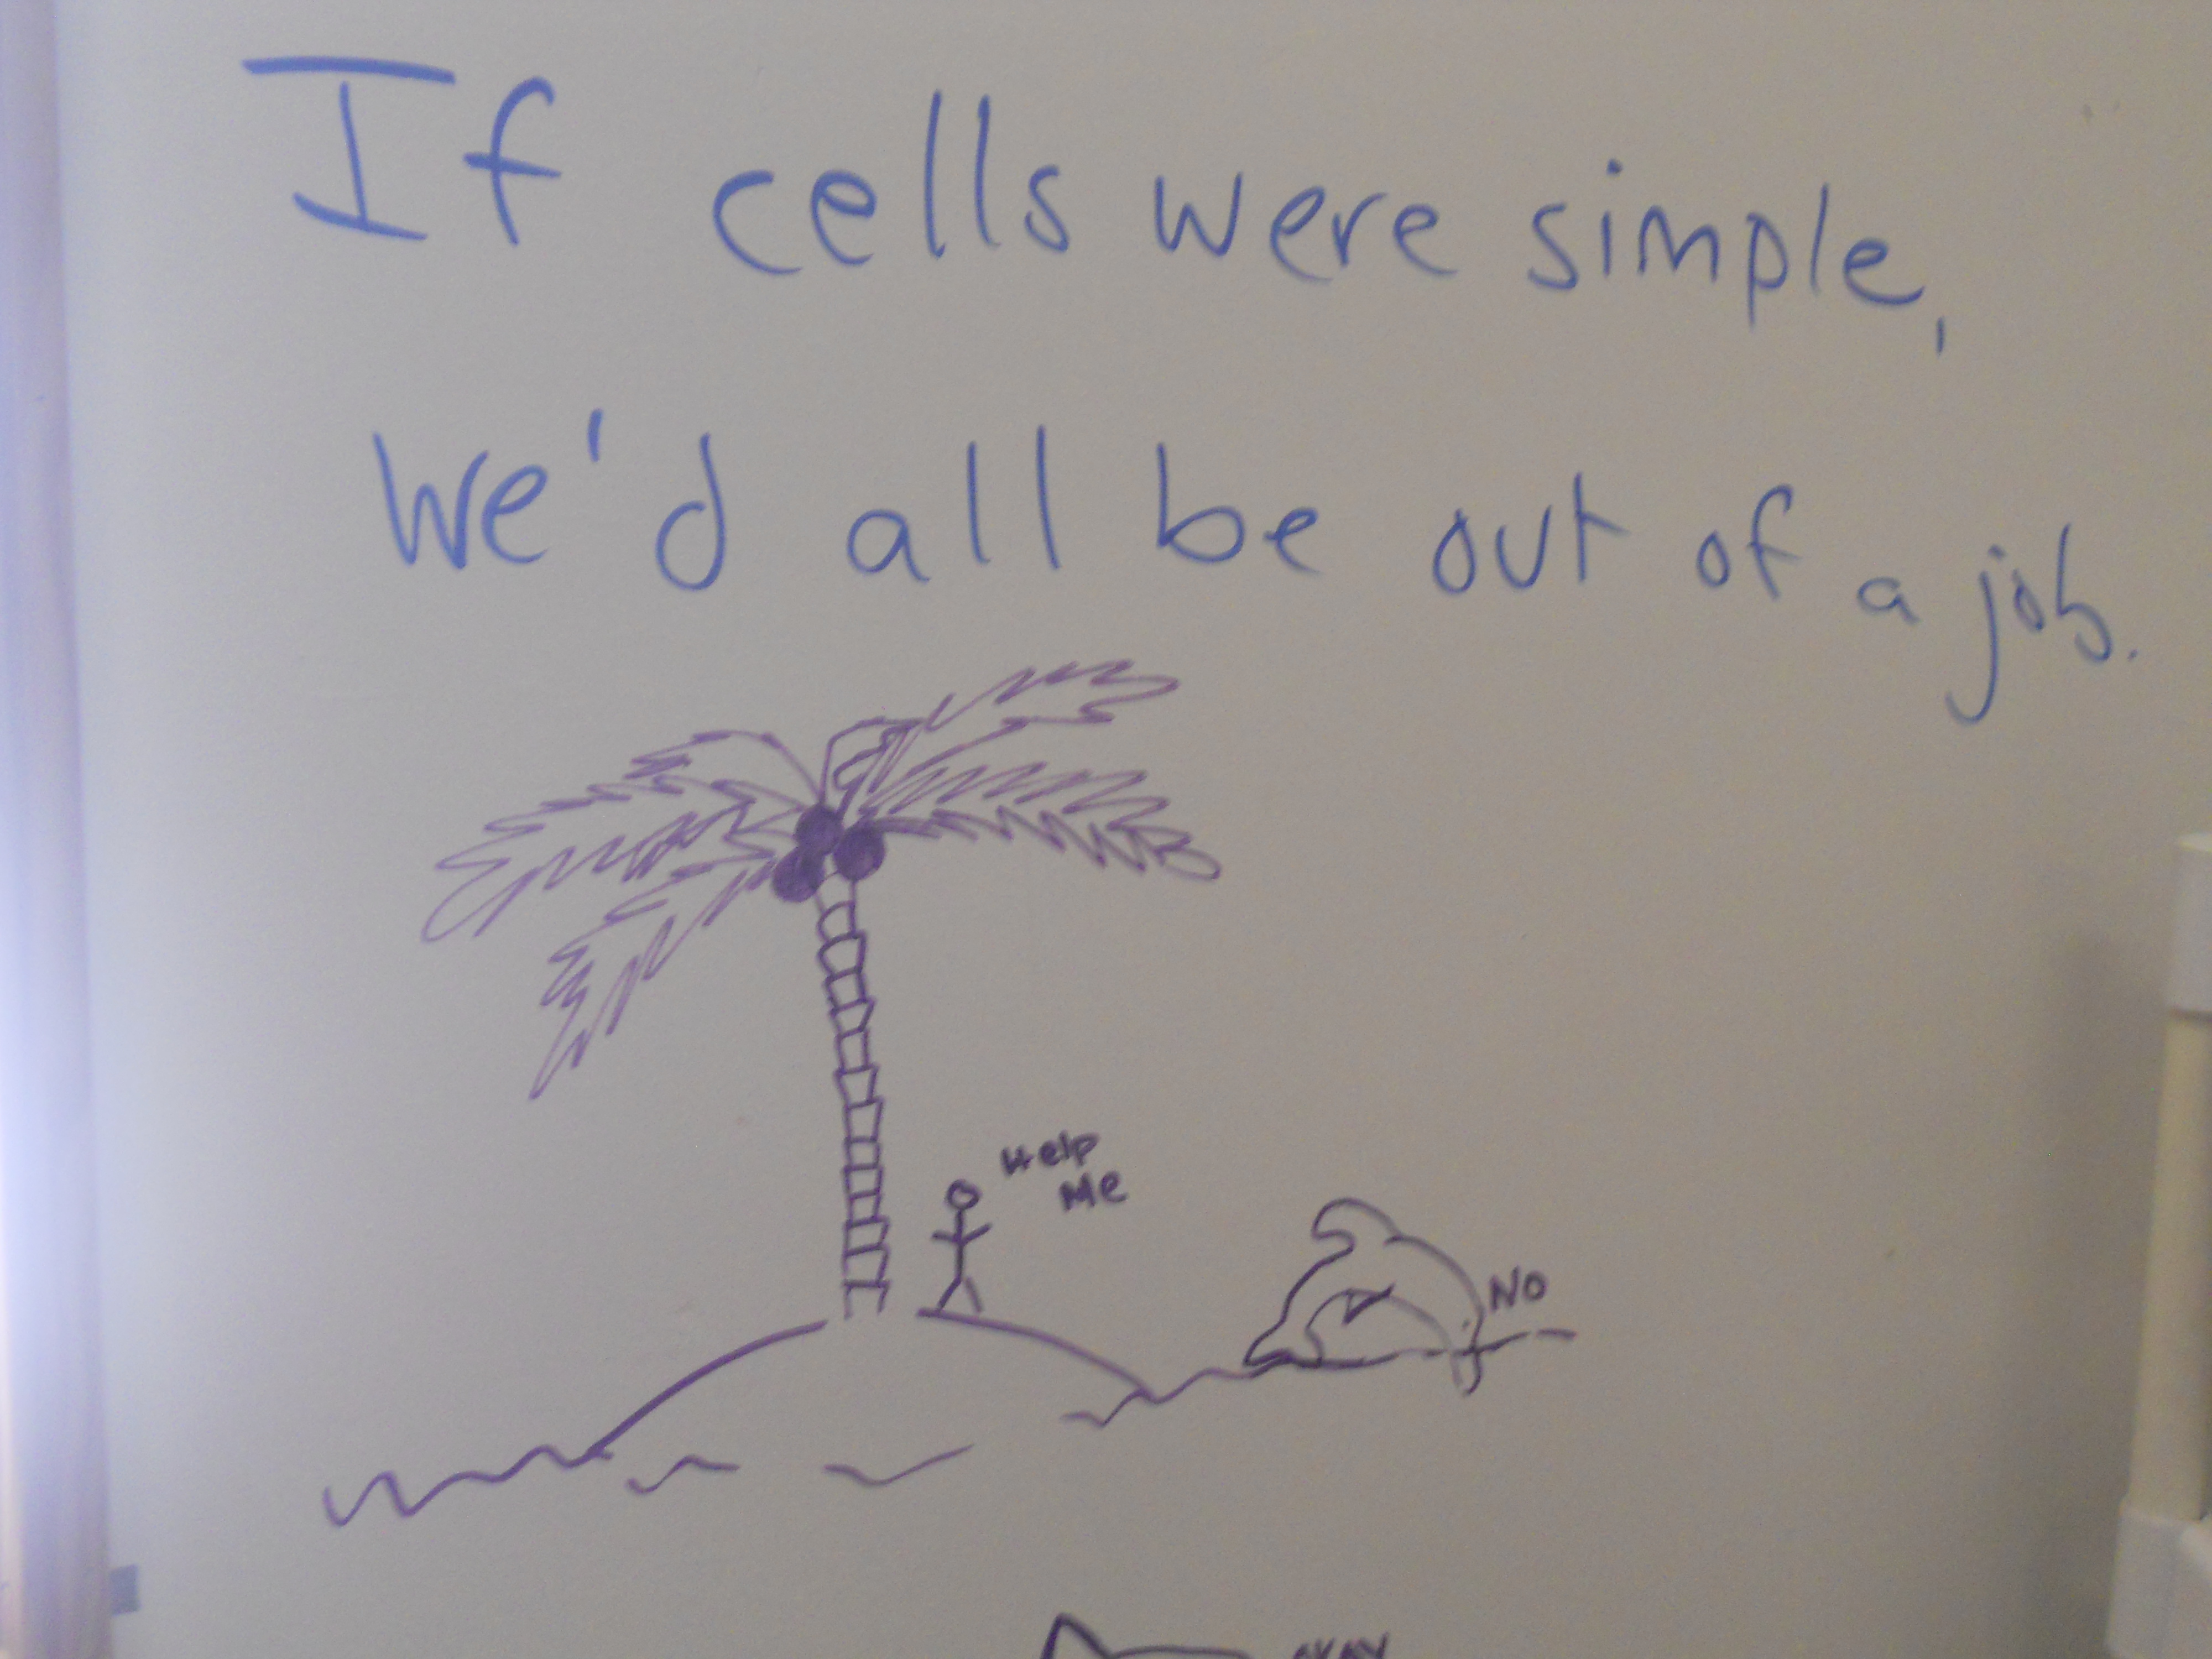 If cells were simple,
We'd all be out of a job.
Help
Me
NO